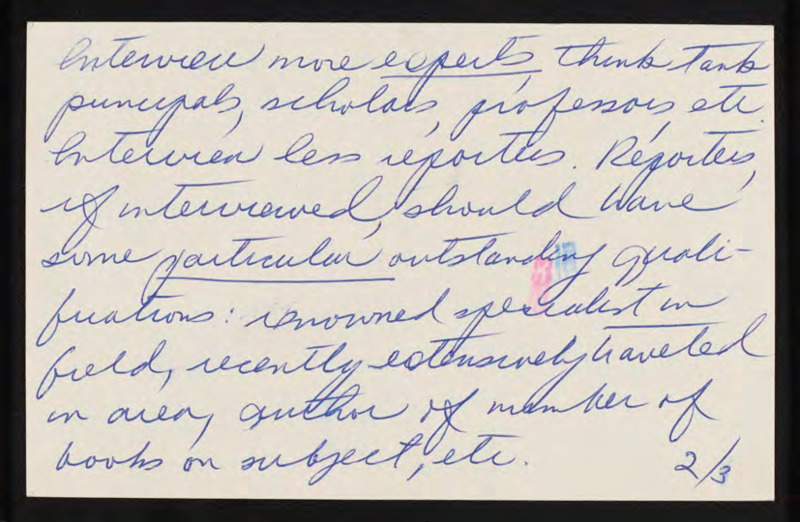 Interview more experts, think tank
principals, scholars, professors, etc.
Interview less reporters. Reporters,
if interviewed, should have
some particular outstanding quali-
fications: renowned specialist in
field, recently extensively traveled
in area, author of number of
books on subject, etc.
2/3